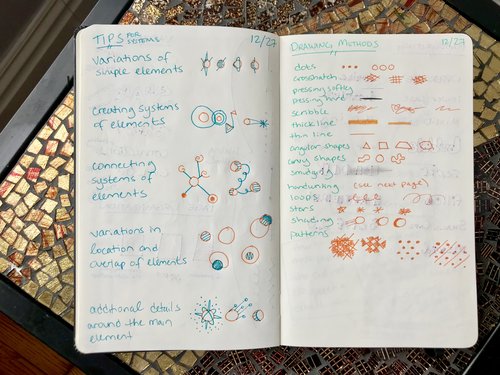 TIPS FOR SYSTEMS 12/27
variations of
simple elements
creating systems
of elements
connecting
systems of
elements
variations in
location and
overlap of elements
additional details
around the main
element
DRAWING METHODS 12/27
dots
crosshatch
pressing softly
pressing hard
scribble
thick line
thin line
angular shapes
curvy shapes
smudging
handwriting (see next page)
loops
stars
shading
patterns